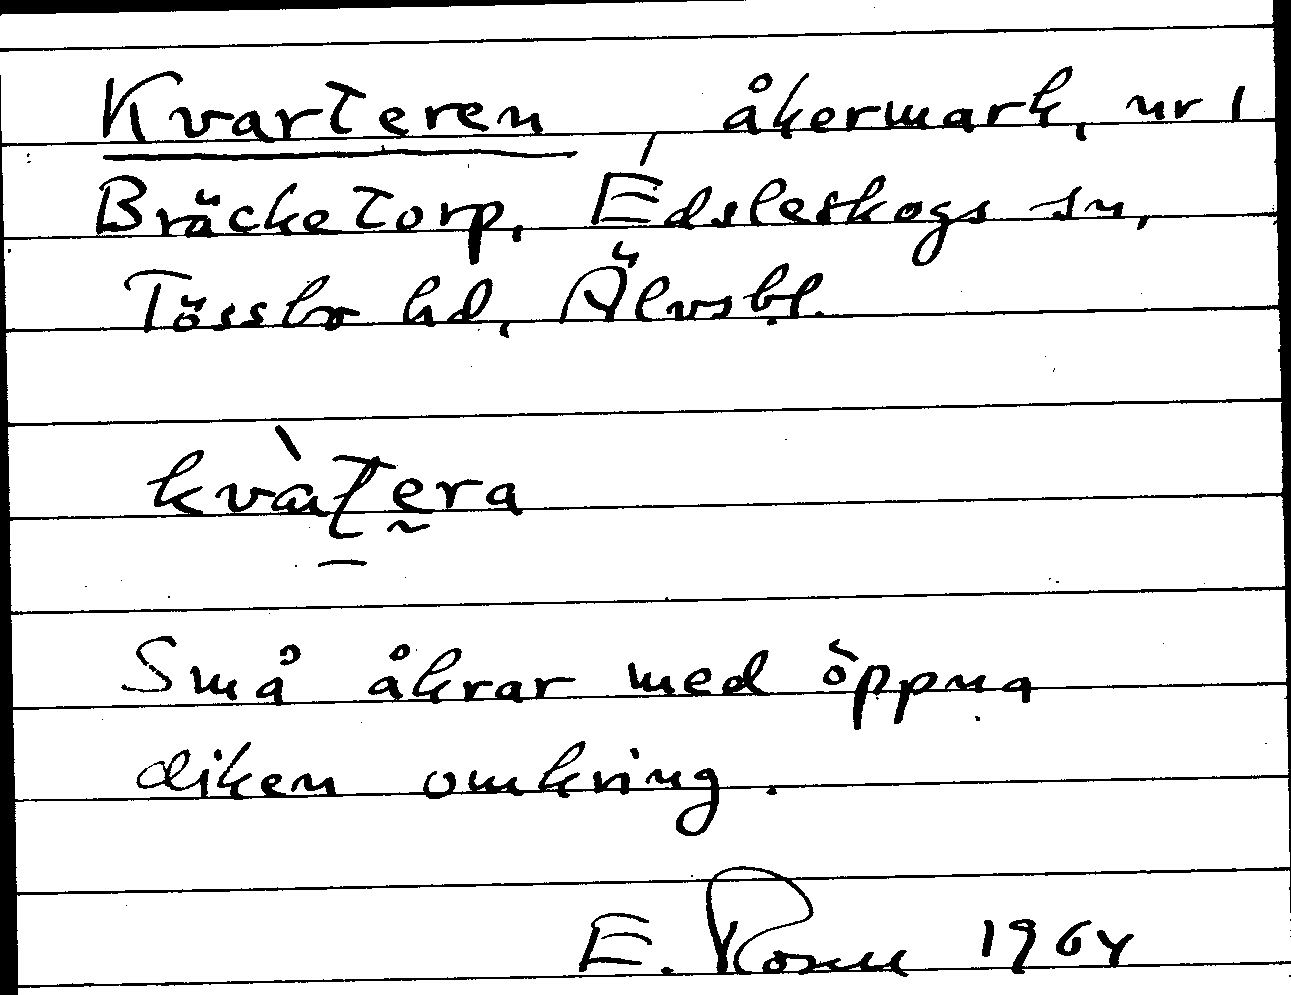 Kvarteren, åkermark, nr 1
Bräcketorp, Edsleskogs sn,
Tössbo hd, Älvsbl.
kvàtera
Små åkrar med öppna
diken omkring.
E. Rosén 1964